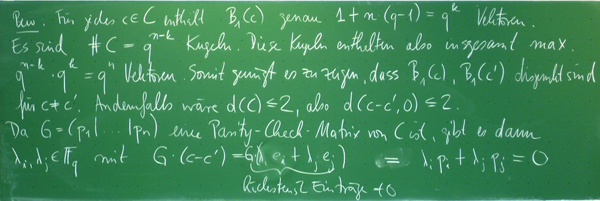 Bew. Für jedes c∈C enthält B₁(c) genau 1+n(q-1) = q^k Vektoren.
Es sind #C = q^{n-k} Kugeln. Diese Kugeln enthalten also insgesamt max.
q^{n-k} · q^k = q^n Vektoren. Somit genügt es zu zeigen, dass B₁(c), B₁(c') disjunkt sind
für c≠c'. Andernfalls wäre d(C) ≤ 2, also d(c-c', 0) ≤ 2.
Da G = (p₁|...|pₙ) eine Parity-Check-Matrix von C ist, gibt es dann
λᵢ, λⱼ ∈ 𝔽_q mit G·(c-c') = G(λᵢeᵢ + λⱼeⱼ) = λᵢpᵢ + λⱼpⱼ = 0
höchstens 2 Einträge ≠0